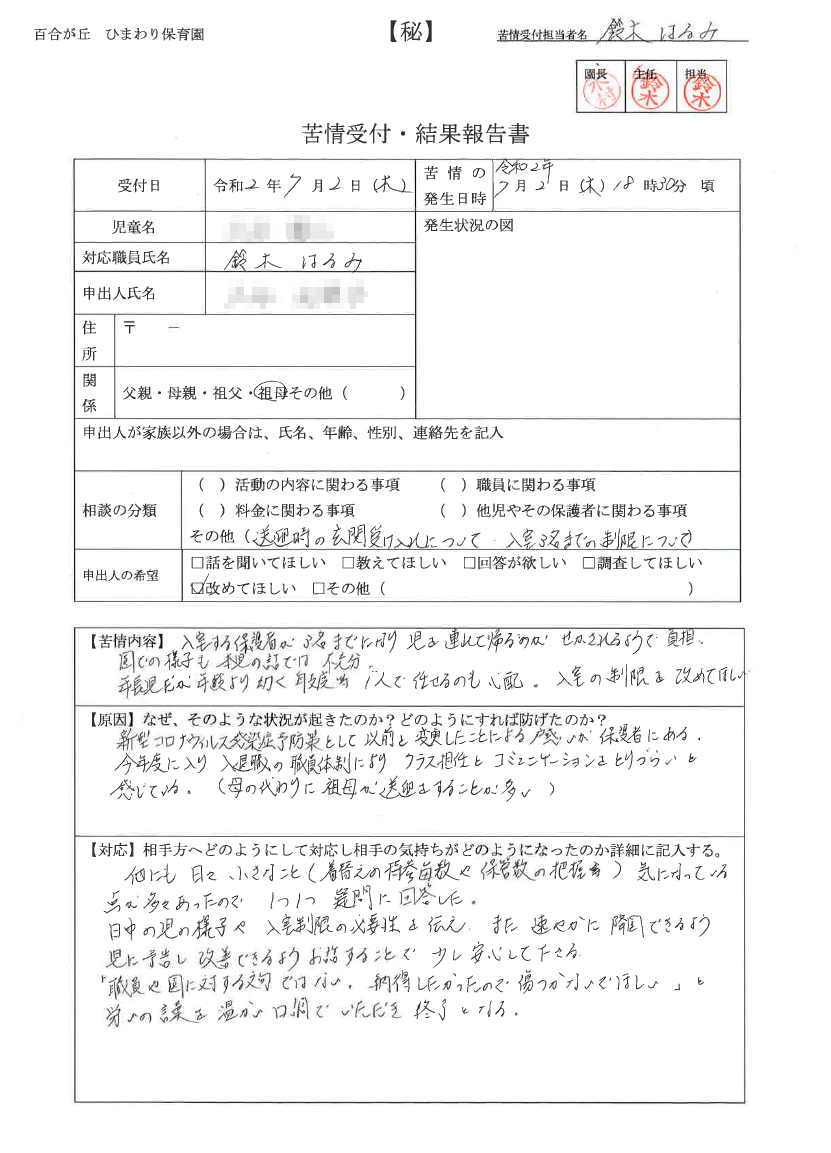 百合が丘　ひまわり保育園
【秘】
苦情受付担当者名 鈴木 はるみ
園長 主任 担当
木村 鈴木 鈴木
苦情受付・結果報告書
受付日 令和2年7月2日(木)
苦情の発生日時 令和2年7月2日(木)18時30分 頃
児童名
発生状況の図
対応職員氏名 鈴木 はるみ
申出人氏名
住所 〒　－
関係 父親・母親・祖父・祖母その他（　　　）
申出人が家族以外の場合は、氏名、年齢、性別、連絡先を記入
相談の分類
（　）活動の内容に関わる事項　（　）職員に関わる事項
（　）料金に関わる事項　（　）他児やその保護者に関わる事項
その他（送迎時の玄関受け入れについて 入室3名までの制限について
申出人の希望
□話を聞いてほしい　□教えてほしい　□回答が欲しい　□調査してほしい
☑改めてほしい　□その他（　　　）
【苦情内容】入室する保護者が3名までになり 児を連れて帰るのが せかされるようで負担、
園での様子も 本児の話では 不充分。
年長児だが年齢より幼く 身支度も 1人で任せるのも心配。入室の制限を改めてほしい
【原因】なぜ、そのような状況が起きたのか？どのようにすれば防げたのか？
新型コロナウィルス感染症予防策として以前と変更したことによる戸惑いが保護者にある。
今年度に入り 入退職の職員体制により クラス担任と コミュニケーションをとりづらいと
感じている。（母の代わりに 祖母が送迎をすることが多い）
【対応】相手方へどのようにして対応し相手の気持ちがどのようになったのか詳細に記入する。
他にも 日々 小さなこと（着替えの持参毎数や 保管数の把握も）気になっている
点が多々あったので 1つ1つ 疑問に回答した。
日中の児の様子や 入室制限の必要性を伝え、また 速やかに 降園できるよう
児に予告し 改善できるようお話することで 少し安心して下さる
「職員や園に対する文句ではない。納得したかったので傷つかないでほしい」と
労いの言葉を 温かい口調で いただき 終了となる。